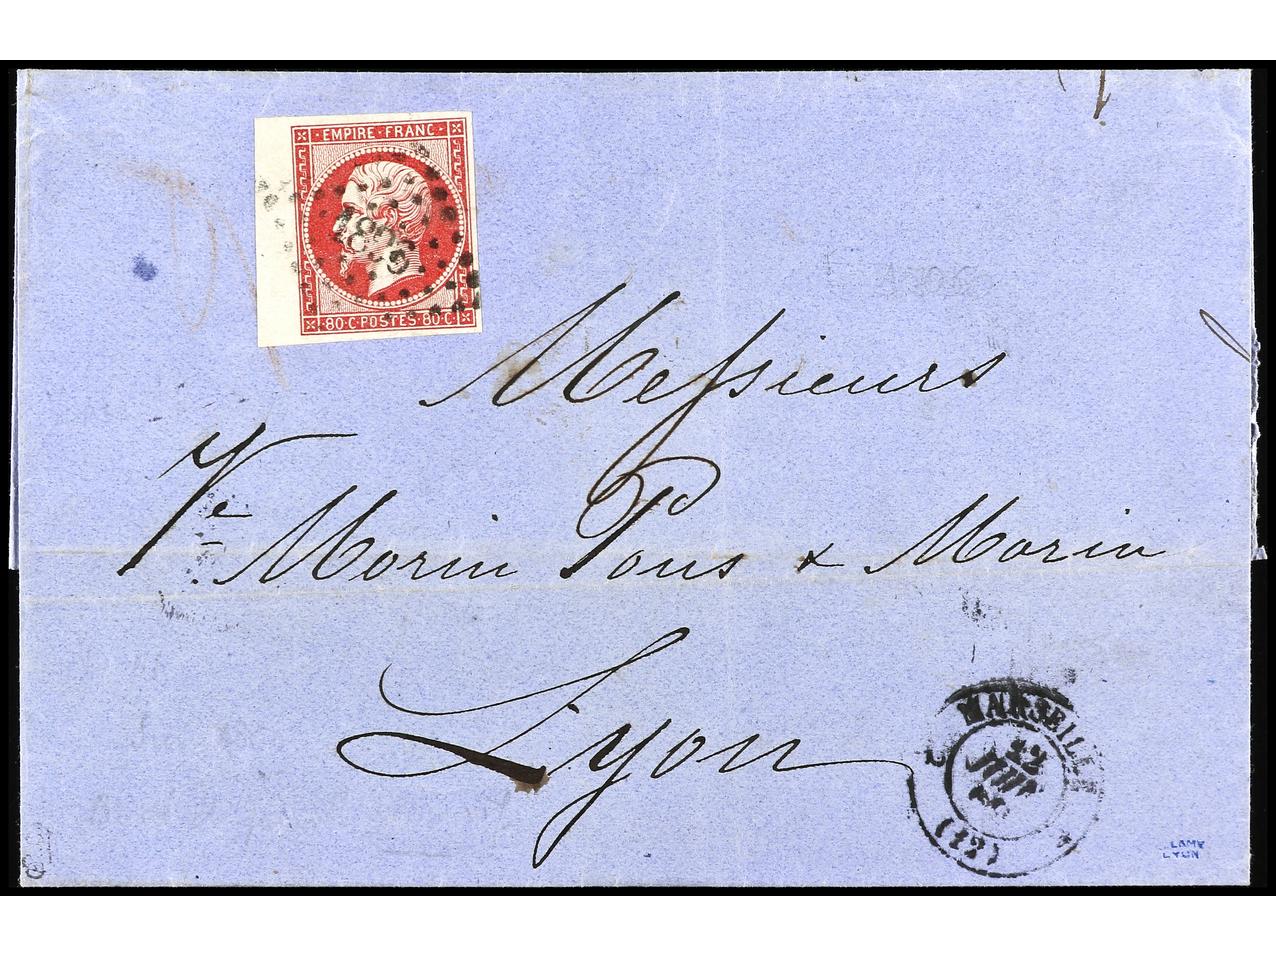 EMPIRE · FRANC ·
1896
80 · C · POSTES · 80 · C ·
Messieurs
Ve Morin Pons & Morin
Lyon
MARSEILLE
22
JUIL
(12)
LAMY
LYON